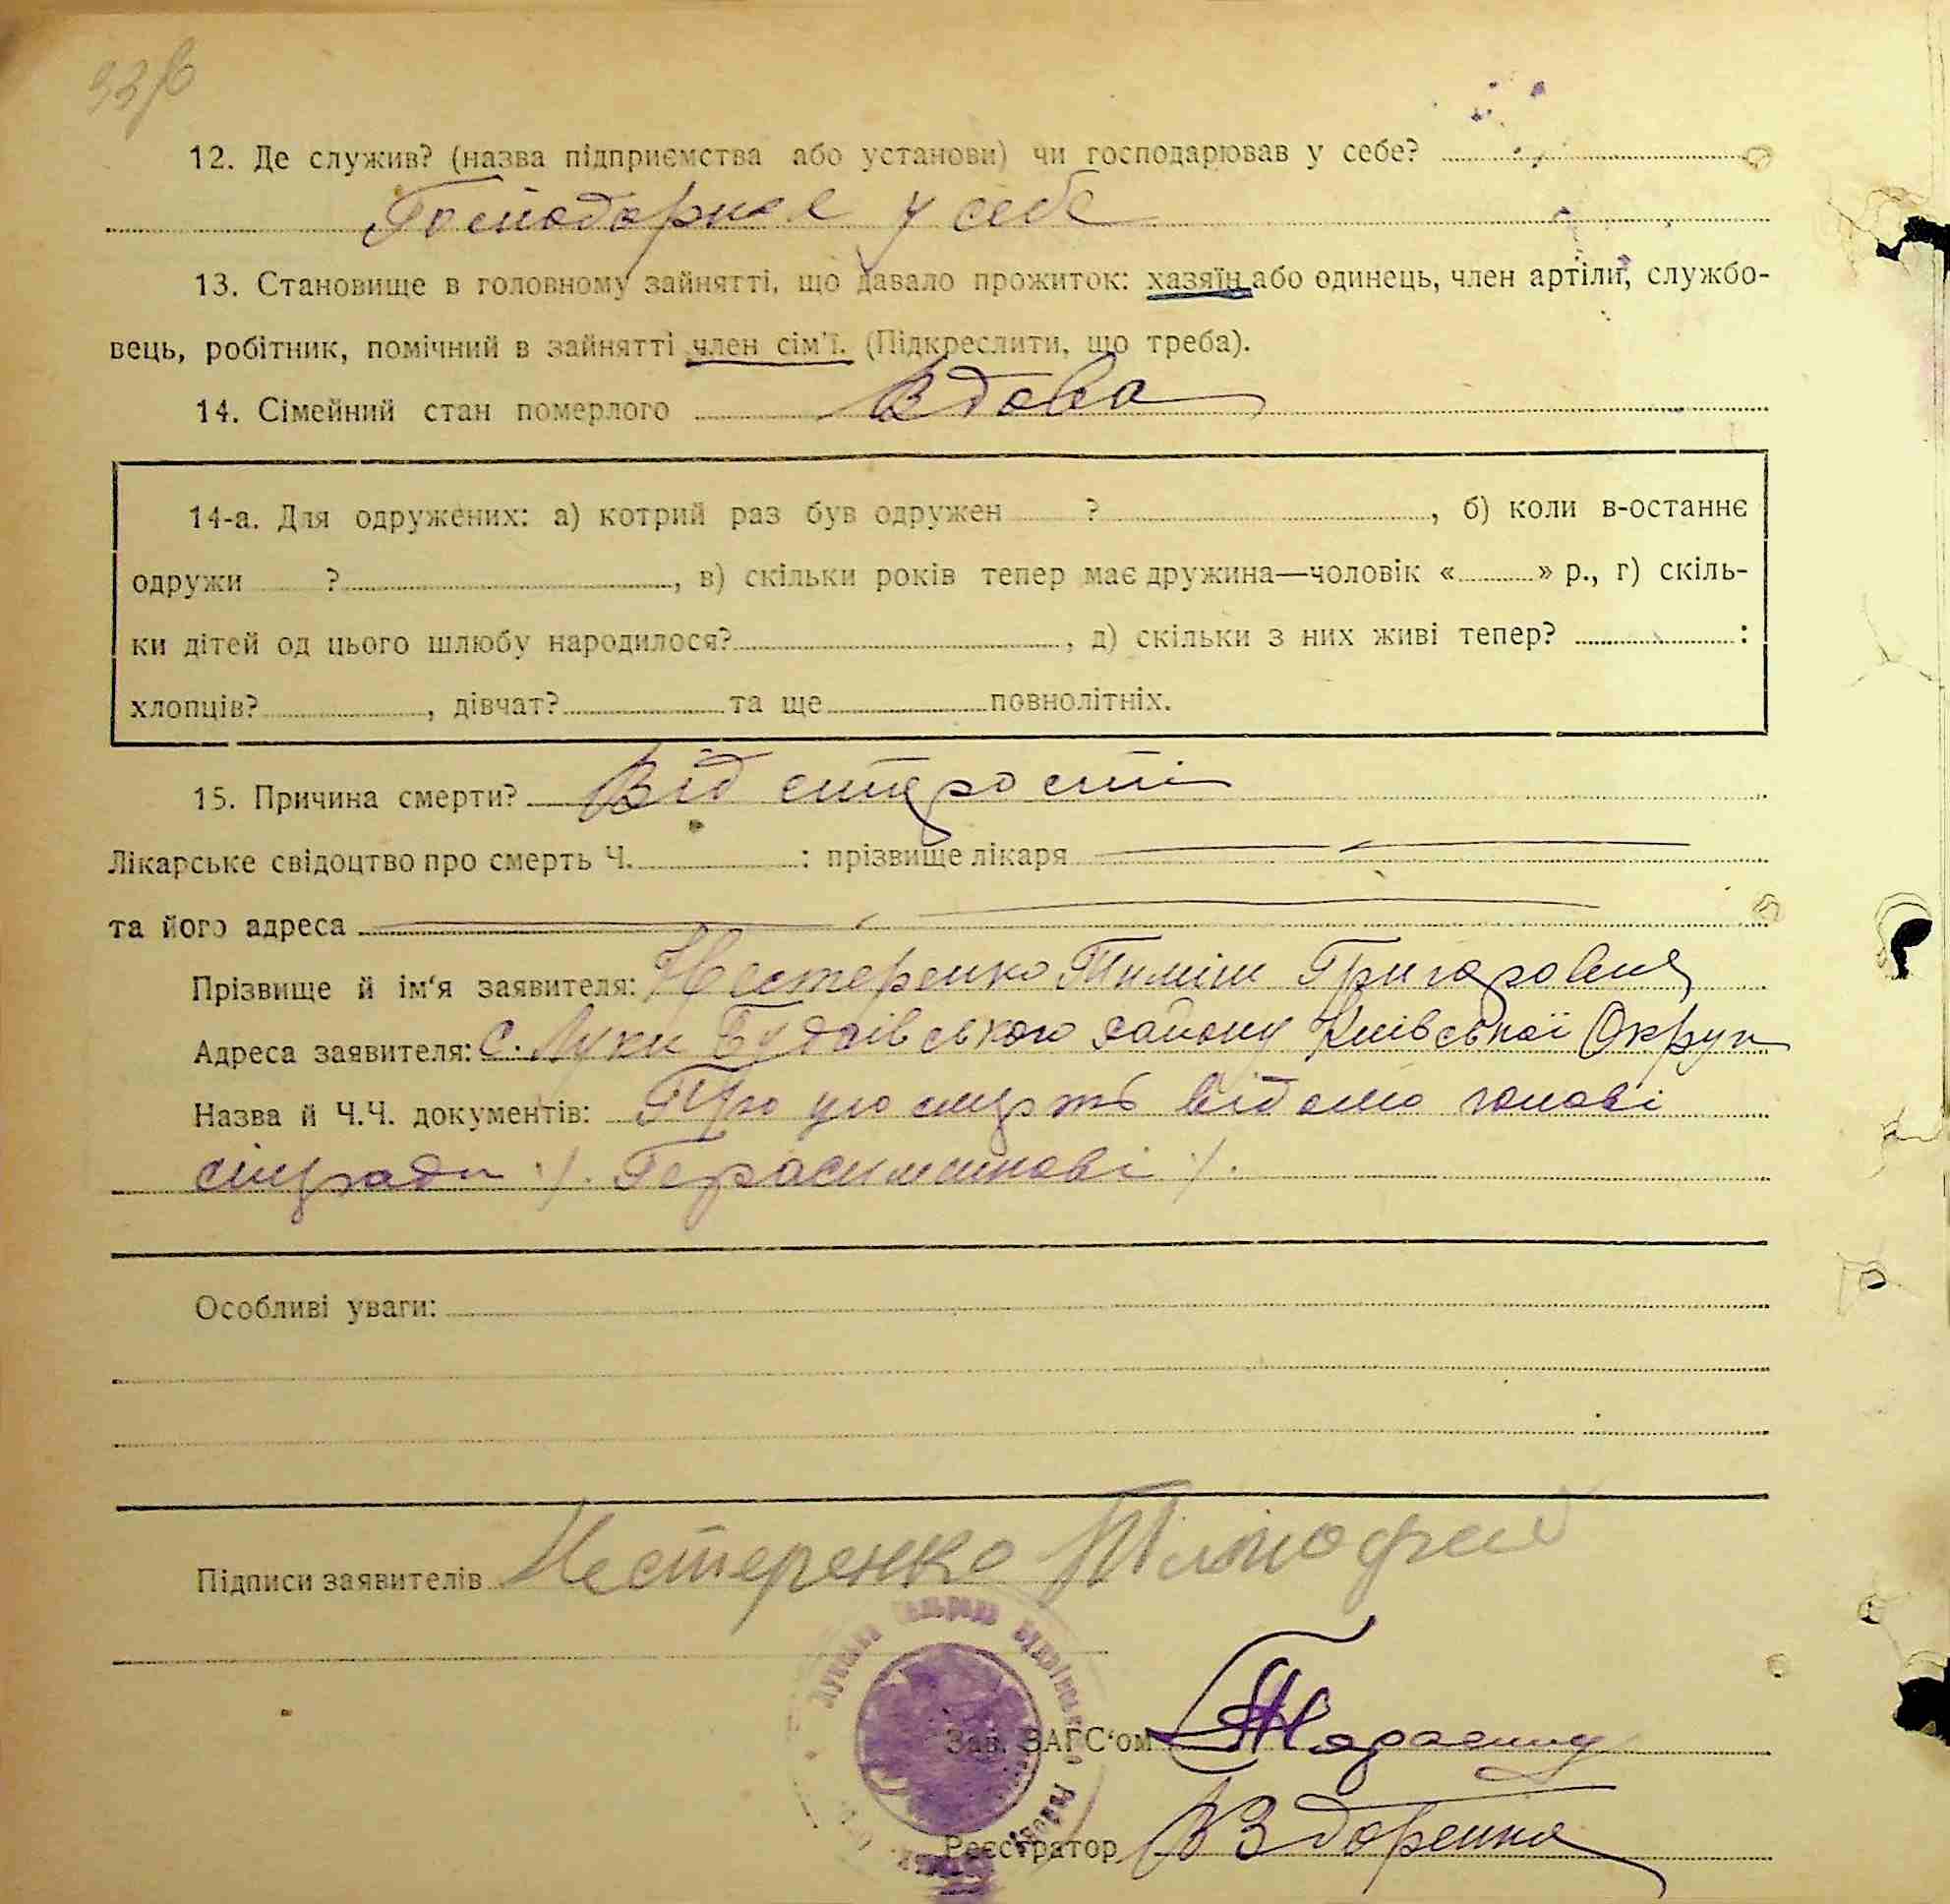 12. Де служив? (назва підприємства або установи) чи господарював у себе?
Господарює у себе
13. Становище в головному зайнятті, що давало прожиток: хазяїн або одинець, член артіли, службо-
вець, робітник, помічний в зайнятті член сім'ї. (Підкреслити, що треба).
14. Сімейний стан померлого Вдова
14-а. Для одружених: а) котрий раз був одружен ?, б) коли в-останнє
одружи ?, в) скільки років тепер має дружина—чоловік « » р., г) скіль-
ки дітей од цього шлюбу народилося?, д) скільки з них живі тепер? :
хлопців?, дівчат? та ще повнолітніх.
15. Причина смерти? Від старости
Лікарське свідоцтво про смерть Ч. : прізвище лікаря
та його адреса
Прізвище й ім'я заявителя: Нестеренко Тиміш
Адреса заявителя: с. Луки Будаівського району Київської Округи
Назва й Ч.Ч. документів: Про цю смерть відомо голові
сільради
Особливі уваги:
Підписи заявителів Нестеренко Тімофей
Зав. ЗАГС'ом
Реєстратор